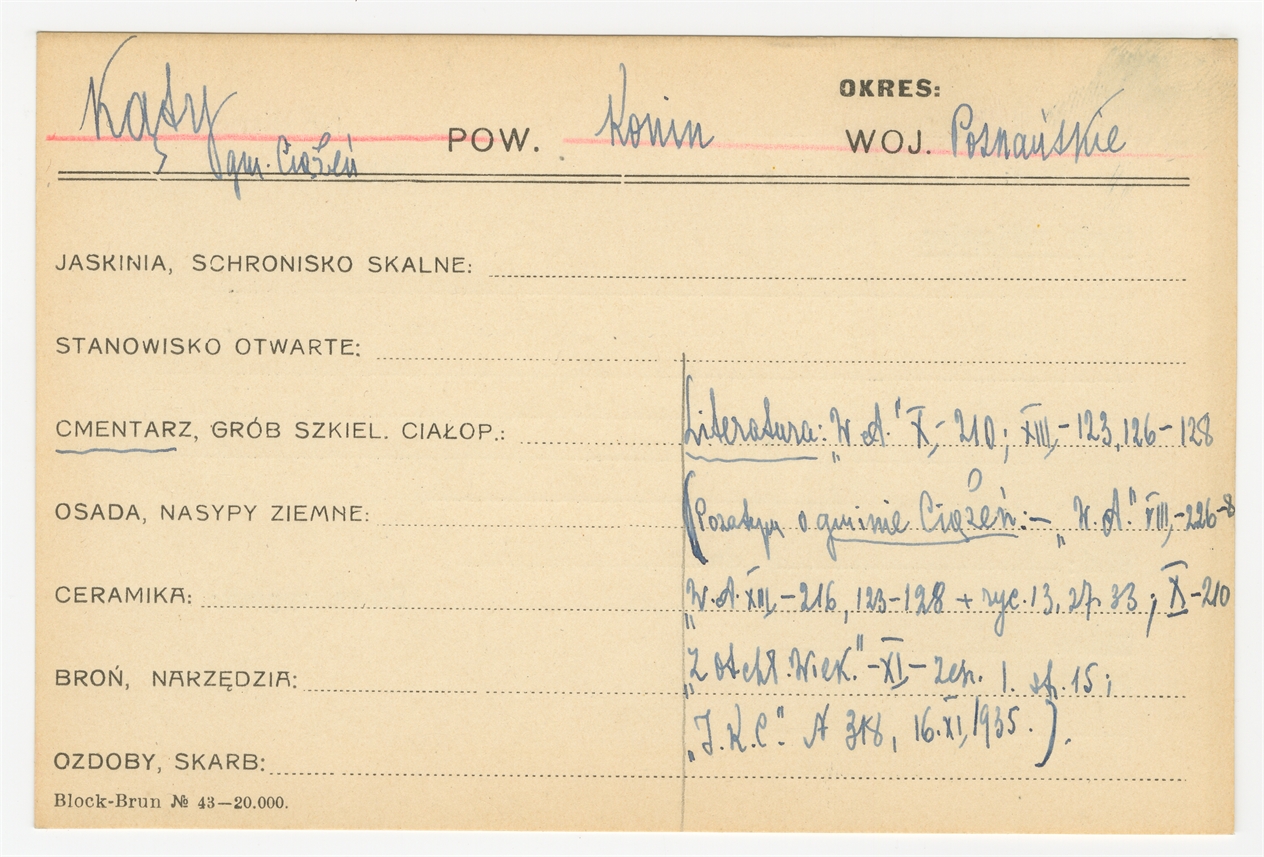 OKRES:
Kąty POW. Konin WOJ. Poznańskie
gm. Ciążeń
JASKINIA, SCHRONISKO SKALNE:
STANOWISKO OTWARTE:
CMENTARZ, GRÓB SZKIEL. CIAŁOP.: Literatura: „W.A." X,-210; XIII,-123,126-128
OSADA, NASYPY ZIEMNE: (Pozatym o gminie Ciążeń:- „W.A." VIII,-226-8
CERAMIKA: „W.A. XIII,-216, 123-128 + ryc. 13, 27, 33; X-210
BROŃ, NARZĘDZIA: „Z otchł. Wiek."-XI- zesz. 1. st. 15;
„I.K.C." N 318, 16.XI,1935.).
OZDOBY, SKARB:
Block-Brun № 43—20.000.